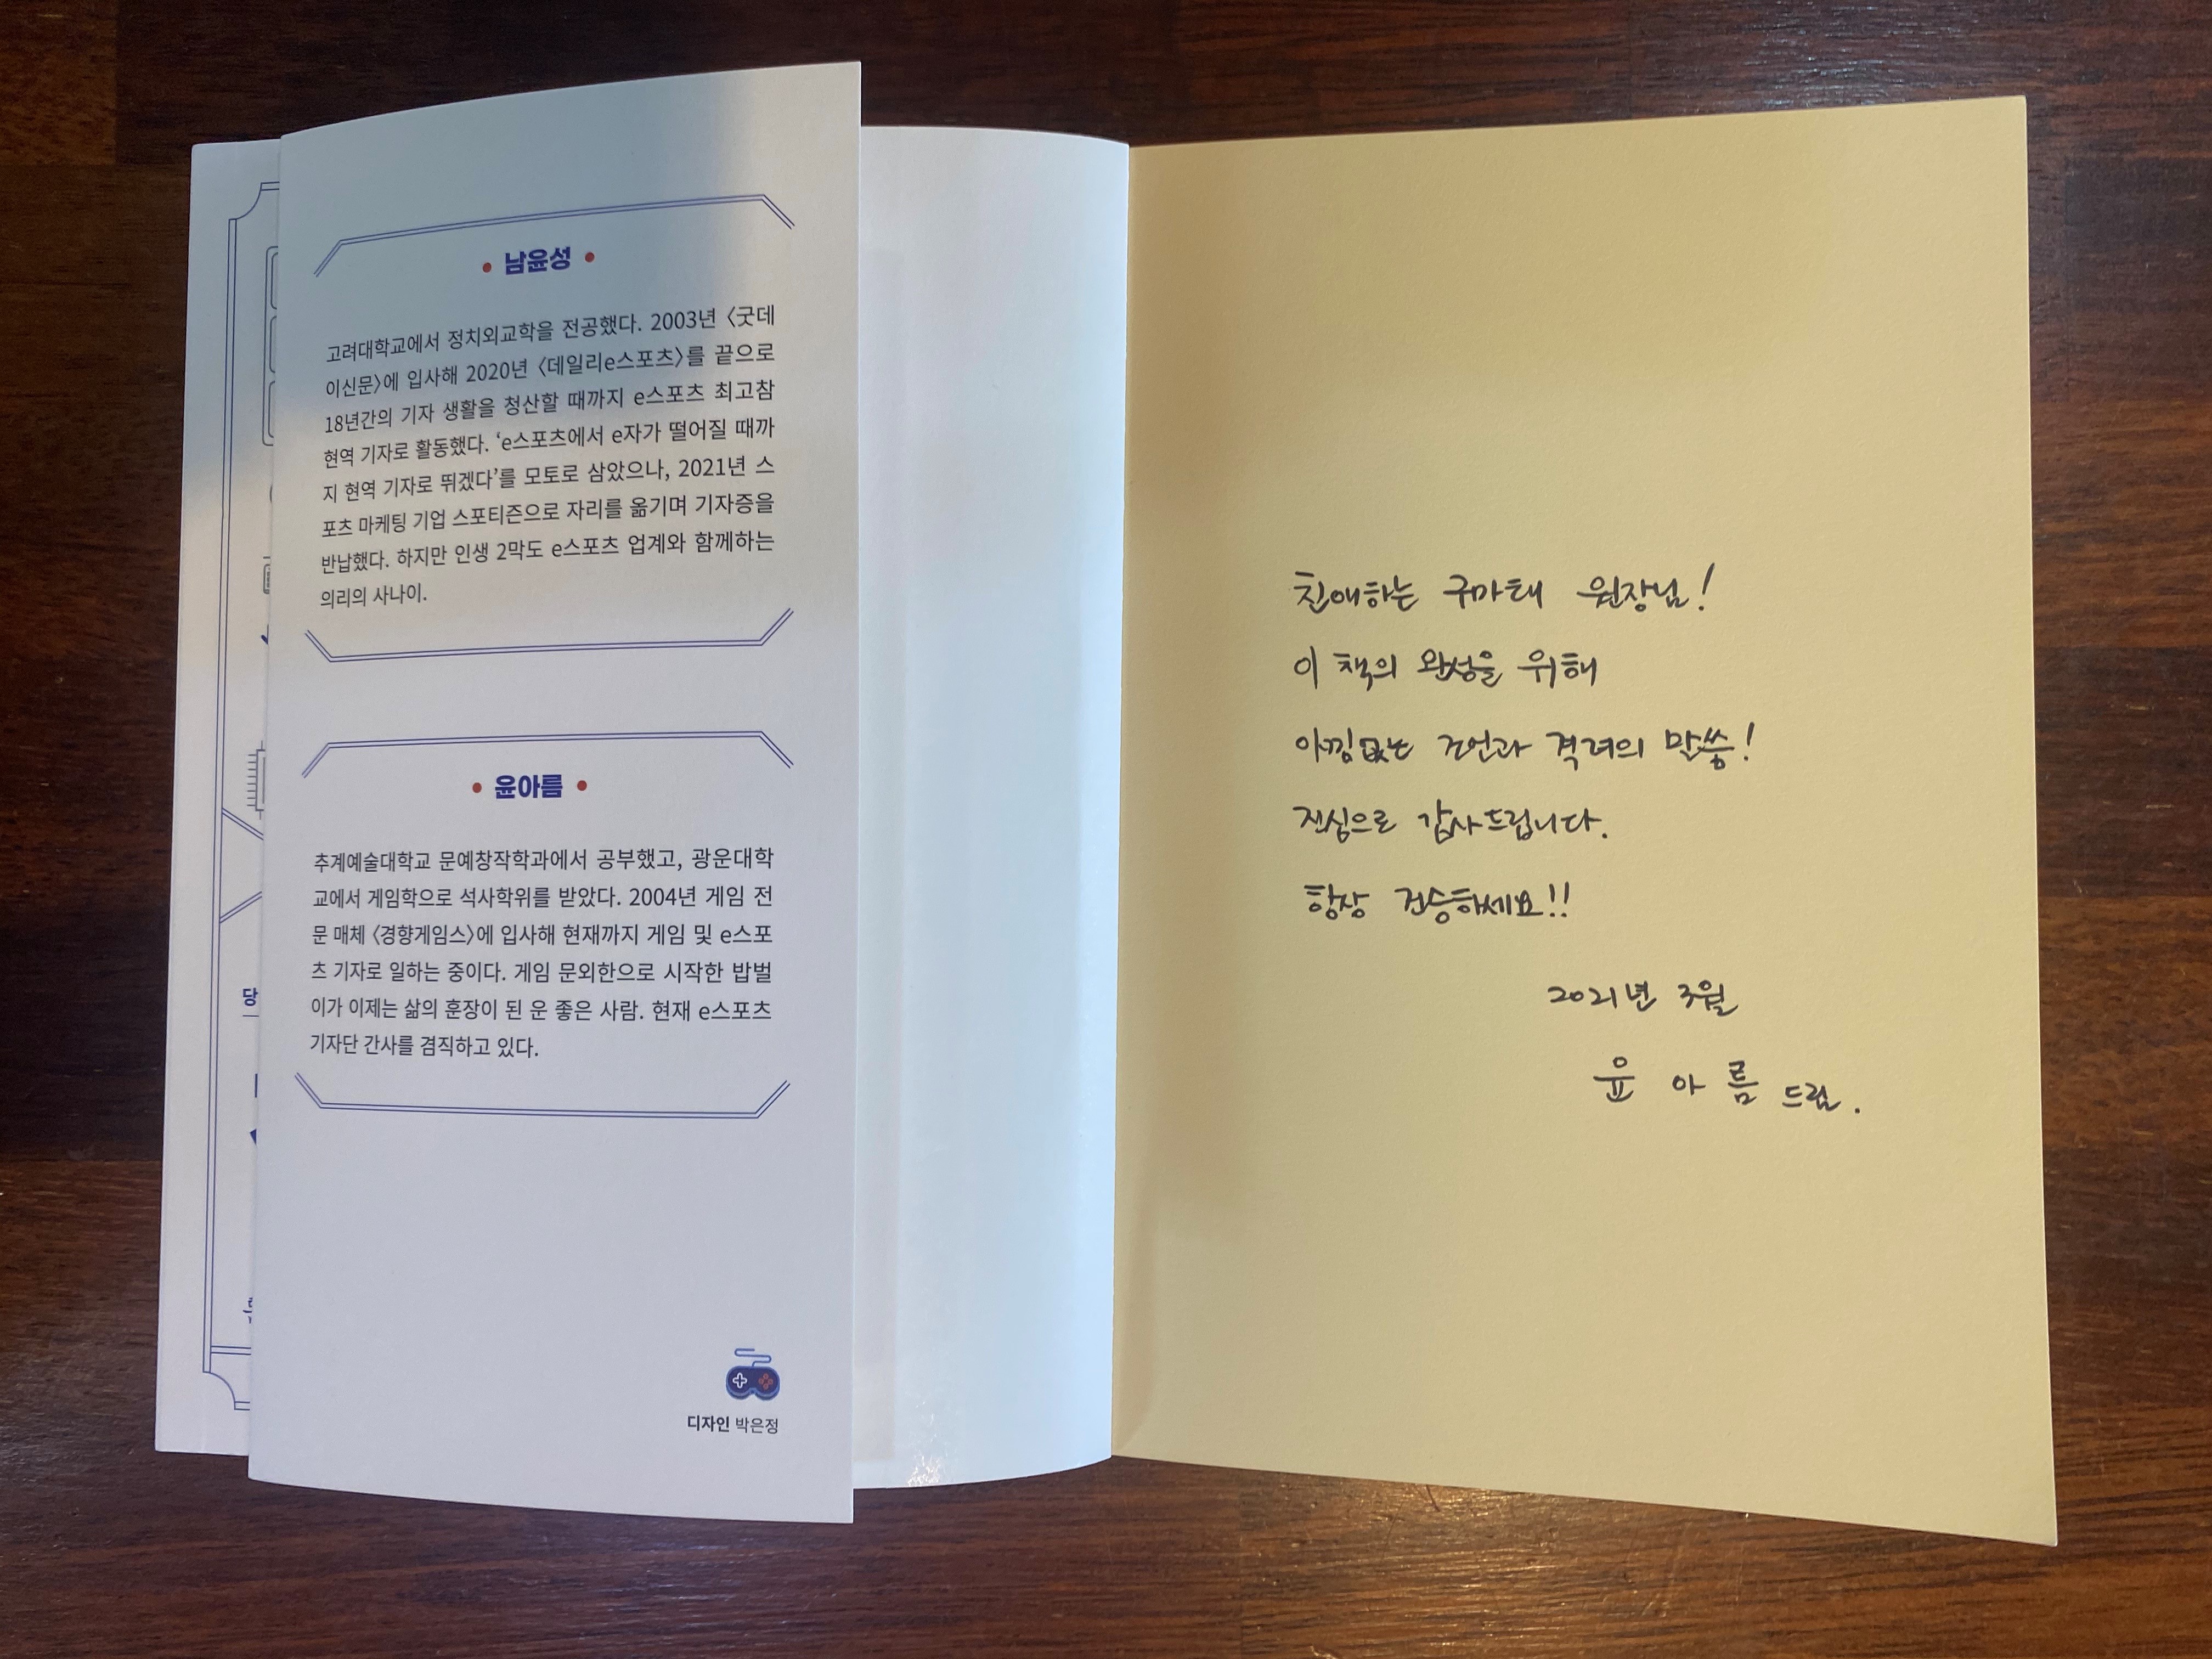 남윤성
고려대학교에서 정치외교학을 전공했다. 2003년 〈굿데
이신문〉에 입사해 2020년 〈데일리e스포츠〉를 끝으로
18년간의 기자 생활을 청산할 때까지 e스포츠 최고참
현역 기자로 활동했다. ‘e스포츠에서 e자가 떨어질 때까
지 현역 기자로 뛰겠다’를 모토로 삼았으나, 2021년 스
포츠 마케팅 기업 스포티즌으로 자리를 옮기며 기자증을
반납했다. 하지만 인생 2막도 e스포츠 업계와 함께하는
의리의 사나이.
윤아름
추계예술대학교 문예창작학과에서 공부했고, 광운대학
교에서 게임학으로 석사학위를 받았다. 2004년 게임 전
문 매체 〈경향게임스〉에 입사해 현재까지 게임 및 e스포
츠 기자로 일하는 중이다. 게임 문외한으로 시작한 밥벌
이가 이제는 삶의 훈장이 된 운 좋은 사람. 현재 e스포츠
기자단 간사를 겸직하고 있다.
디자인 박은정
당
친애하는 구마태 원장님!
이 책의 완성을 위해
아낌없는 조언과 격려의 말씀!
진심으로 감사드립니다.
항상 건승하세요!!
2021년 3월
윤 아 름 드림.